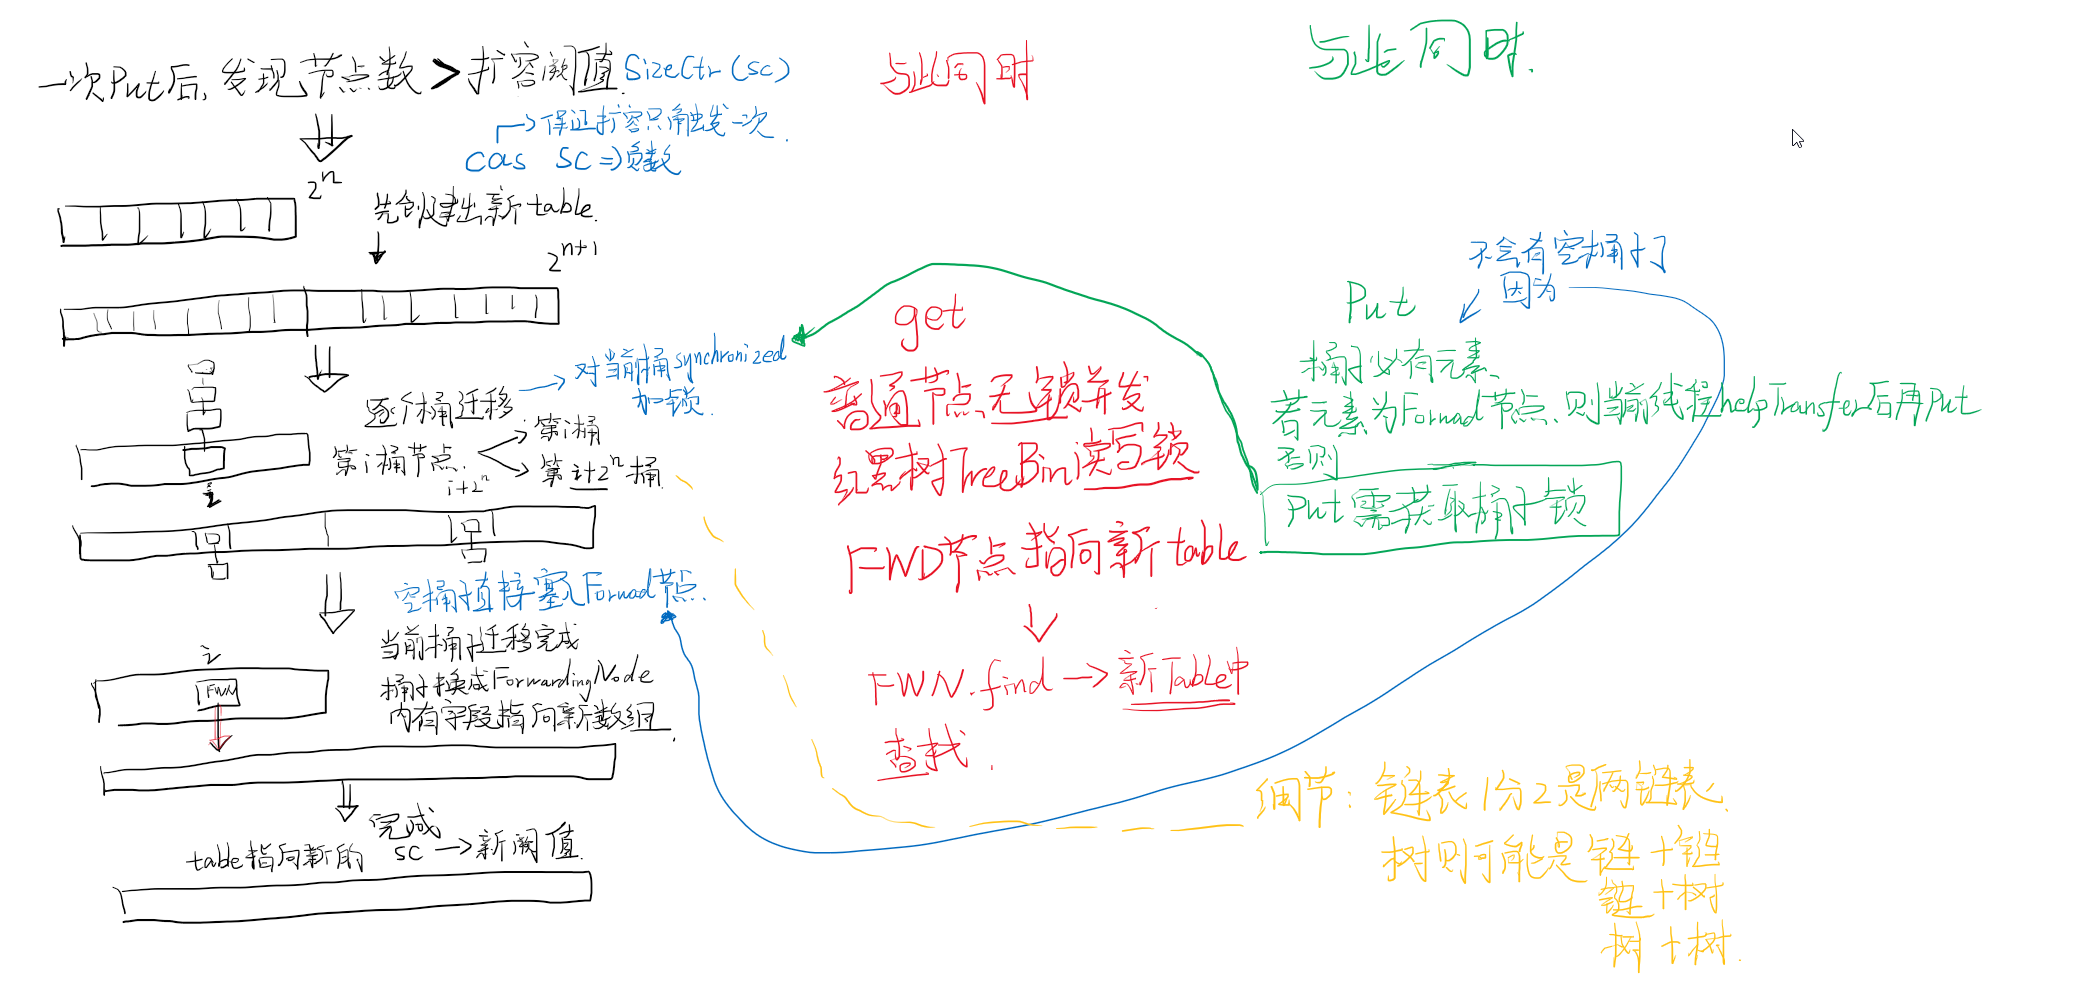 一次Put后,发现节点数>扩容阈值 SizeCtr(sc)
保证扩容只触发一次.
cas sc⇒负数
2^n
先创建出新table.
2^n+1
逐个桶迁移
对当前桶synchronized
加锁.
第i桶节点.
第i桶
第i+2^n桶
i+2^n
i
空桶子直接塞入Forward节点.
当前桶子迁移完成
桶子换成ForwardingNode
内有字段指向新数组.
i
FWN
完成
table指向新的
sc→新阈值.
与此同时
get
普通节点、无锁并发
红黑树TreeBin读写锁
FWD节点指向新table
FWN.find→新Table中
查找.
与此同时.
不会有空桶子了
因为
Put
桶子必有元素、
若元素为Forwad节点、则当前线程helpTransfer后再Put
否则
Put需获取桶子锁
细节:链表1分2是两链表.
树则可能是链+链
链+树
树+树.